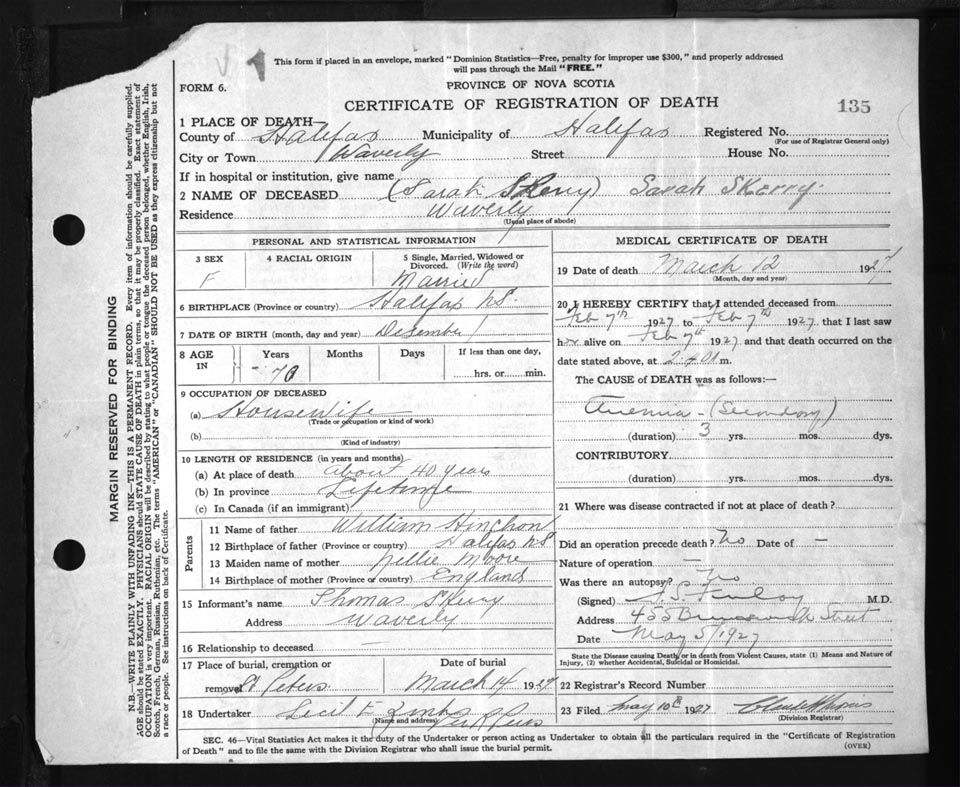 This form if placed in an envelope, marked "Dominion Statistics—Free, penalty for improper use $300," and properly addressed
will pass through the Mail "FREE."
FORM 6.
PROVINCE OF NOVA SCOTIA
CERTIFICATE OF REGISTRATION OF DEATH
135
1 PLACE OF DEATH—
County of Halifax Municipality of Halifax Registered No.
(For use of Registrar General only)
City or Town Waverly Street House No.
If in hospital or institution, give name
2 NAME OF DECEASED (Sarah Skerry) Sarah Skerry.
Residence Waverly
(Usual place of abode)
PERSONAL AND STATISTICAL INFORMATION
3 SEX 4 RACIAL ORIGIN 5 Single, Married, Widowed or
Divorced. (Write the word)
F Married
6 BIRTHPLACE (Province or country) Halifax N.S.
7 DATE OF BIRTH (month, day and year) December 1
8 AGE IN Years Months Days If less than one day,
hrs. or min.
9 OCCUPATION OF DECEASED
(a) Housewife
(Trade or occupation or kind of work)
(b)
(Kind of industry)
10 LENGTH OF RESIDENCE (in years and months)
(a) At place of death about 40 years
(b) In province Lifetime
(c) In Canada (if an immigrant)
Parents
11 Name of father William Hinchon
12 Birthplace of father (Province or country) Halifax N.S
13 Maiden name of mother Nellie Moore
14 Birthplace of mother (Province or country) England
15 Informant's name Thomas Skerry
Address Waverly
16 Relationship to deceased
17 Place of burial, cremation or Date of burial
removal St Peters March 14 1927
18 Undertaker Cecil E
(Name and address)
MEDICAL CERTIFICATE OF DEATH
19 Date of death March 12 1927
(Month, day and year)
20 I HEREBY CERTIFY that I attended deceased from
Feb 7th 1927 to Feb 7th 1927 that I last saw
her alive on Feb 7th 1927 and that death occurred on the
date stated above, at m.
The CAUSE of DEATH was as follows:—
Anemia - (Secondary)
(duration) 3 yrs. mos. dys.
CONTRIBUTORY
(duration) yrs. mos. dys.
21 Where was disease contracted if not at place of death?
Did an operation precede death? No Date of —
Nature of operation —
Was there an autopsy? No
(Signed) Finlay M.D.
Address 455 Brunswick Street
Date May 5/1927
State the Disease causing Death, or in death from Violent Causes, state (1) Means and Nature of
Injury, (2) whether Accidental, Suicidal or Homicidal.
22 Registrar's Record Number
23 Filed May 10th 1927
(Division Registrar)
SEC. 46—Vital Statistics Act makes it the duty of the Undertaker or person acting as Undertaker to obtain all the particulars required in the "Certificate of Registration
of Death" and to file the same with the Division Registrar who shall issue the burial permit.
(OVER)
MARGIN RESERVED FOR BINDING
N.B.—WRITE PLAINLY WITH UNFADING INK—THIS IS A PERMANENT RECORD. Every item of information should be carefully supplied.
AGE should be stated EXACTLY. PHYSICIANS should STATE CAUSE OF DEATH in plain terms, so that it may be properly classified. Exact statement of
OCCUPATION is very important. RACIAL ORIGIN will be described by stating to what people or tongue the deceased person belonged, whether English, Irish,
Scotch, French, German, Russian, Ruthenian, etc. The terms "AMERICAN" or "CANADIAN" SHOULD NOT BE USED as they express citizenship but not
a race or people. See instructions on back of Certificate.